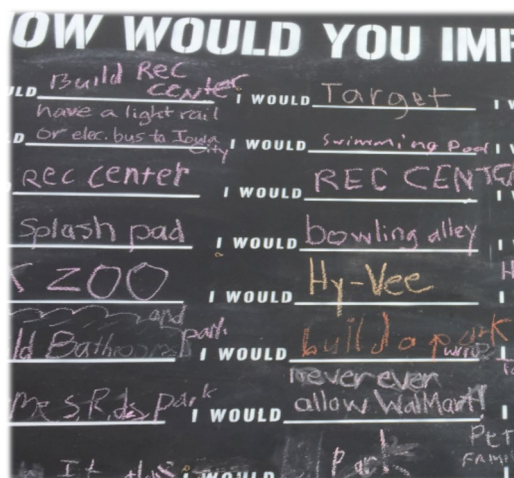 OW WOULD YOU IMP
Build Rec
Center
I WOULD Target
have a light rail
or elec. bus to Iowa
City
I WOULD Swimming Pool
Rec Center
I WOULD REC CENTE
Splash pad
I WOULD bowling alley
ZOO
I WOULD Hy-Vee
and
ld Bathrooms park
I WOULD build a park
W
never even
park
I WOULD allow WalMart!
I WOULD Park
Pet